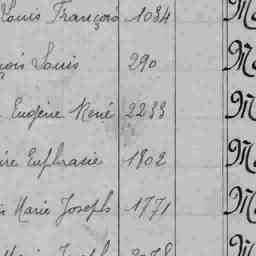 Louis François 1034 M
çois Louis 290 M
Eugène René 2233 M
ire Euphrasie 1802 M
Marie Joseph 1771 M